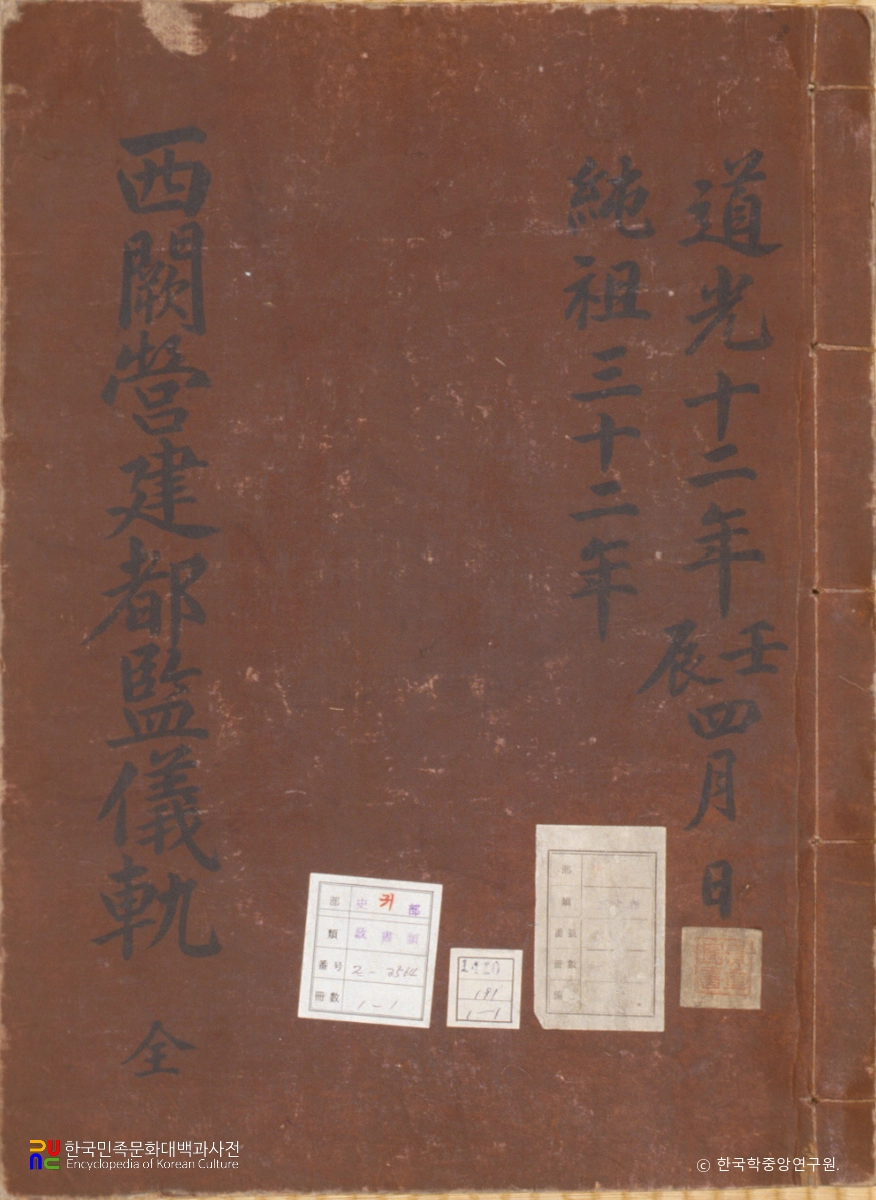 道光十二年壬辰四月 日
純祖三十二年
西闕營建都監儀軌 全
部 史 귀 部
類 政書類
番号 2-3564
冊數 1-1
191
1-1
部
類
番號
冊數
한국민족문화대백과사전
Encyclopedia of Korean Culture
© 한국학중앙연구원